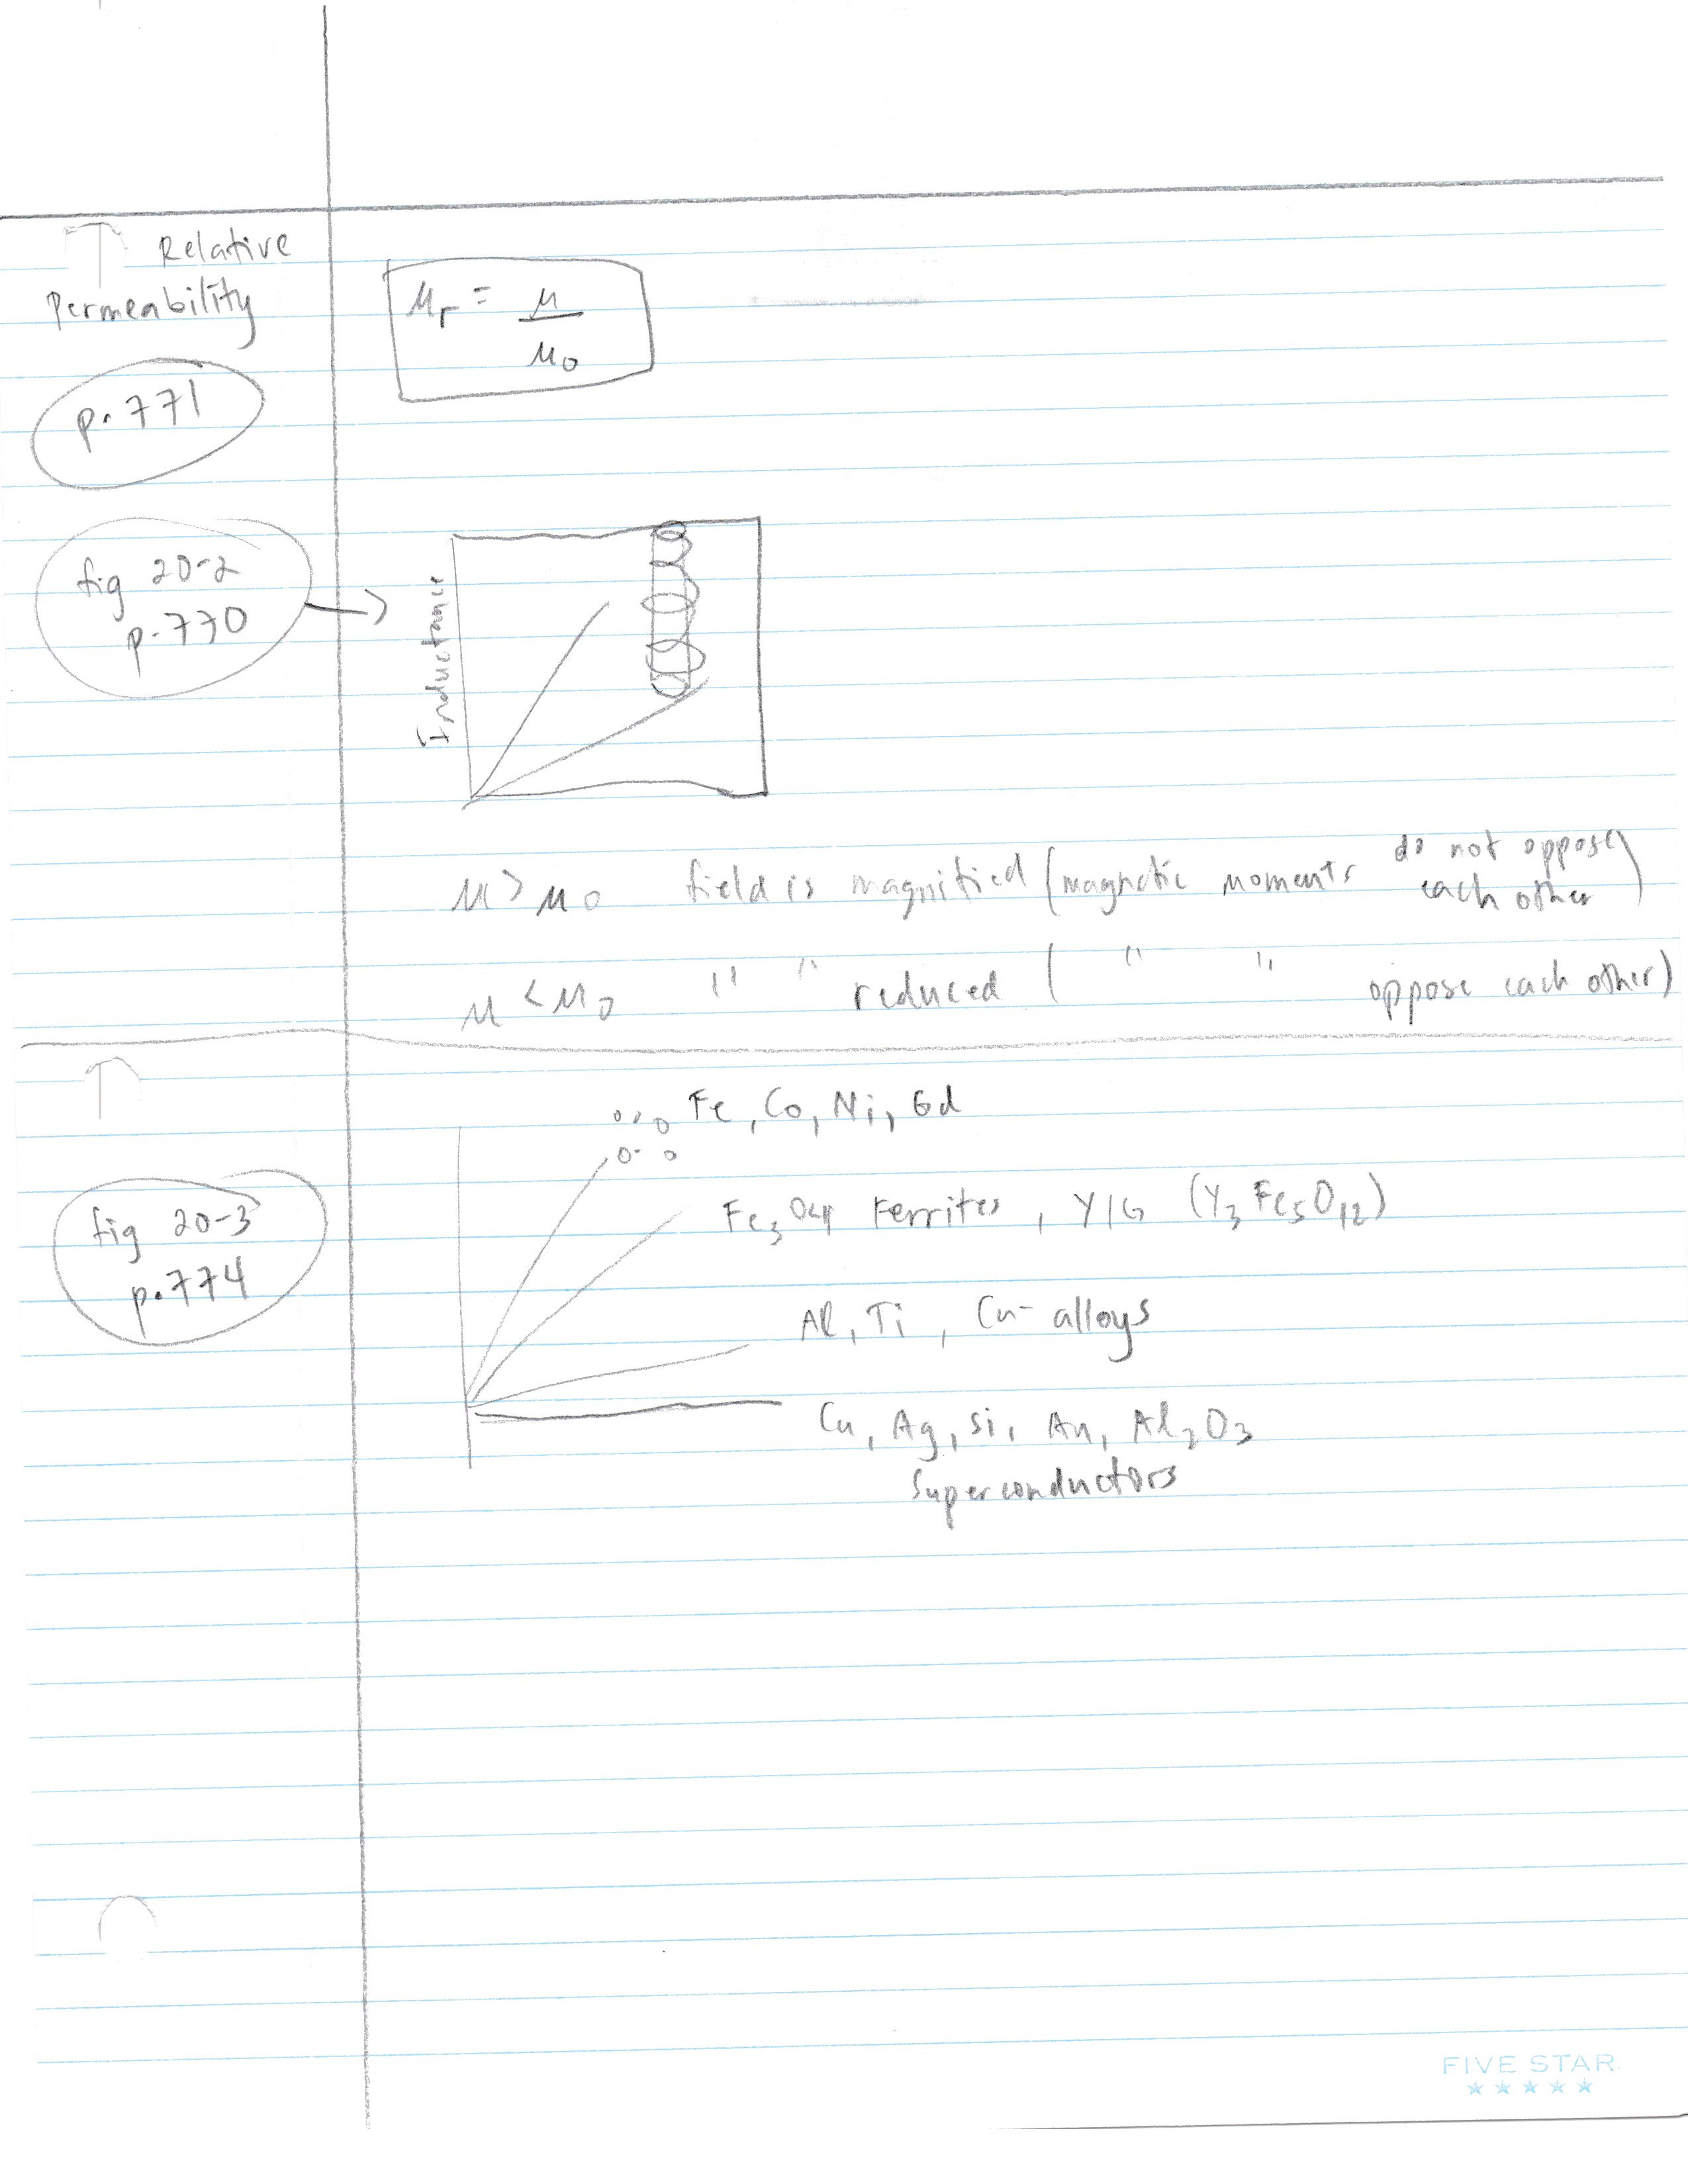 Relative
Permeability
μr = μ / μ0
p. 771
fig 20-2
p. 770
Inductance
μ > μ0 field is magnified (magnetic moments do not oppose each other)
μ < μ0 " " reduced ( " " oppose each other)
Fe, Co, Ni, Gd
fig 20-3
p. 774
Fe3O4, Ferrites, YIG (Y3Fe5O12)
Al, Ti, Cu-alloys
Cu, Ag, Si, Au, Al2O3
Superconductors
FIVE STAR